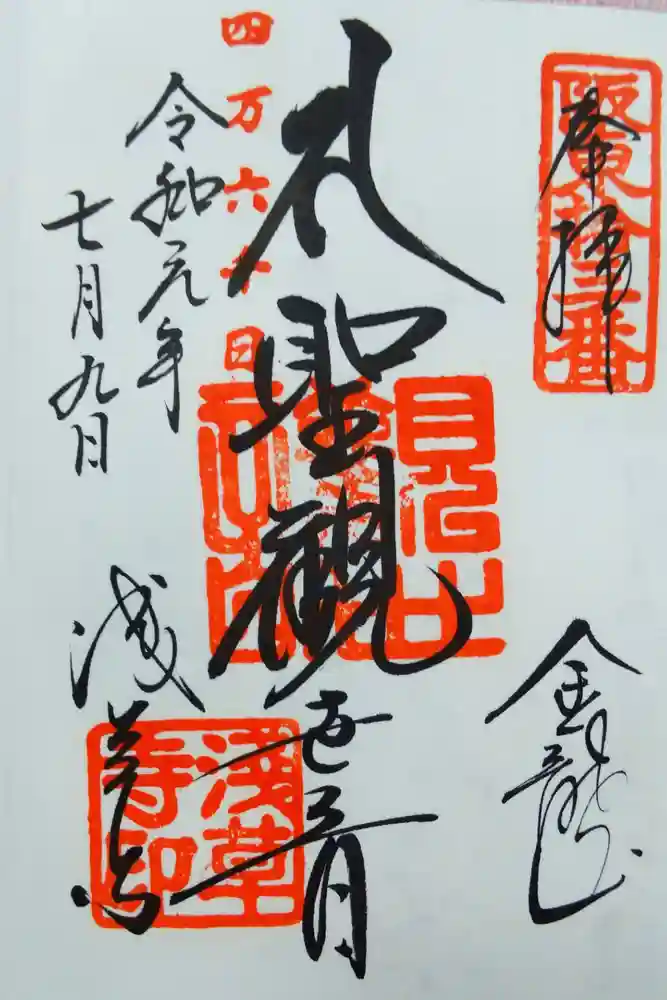 奉拝
阪東拾三番
金龍山
礼聖観世音
四万六千日
令和元年
七月九日
浅草寺
淺草
寺印